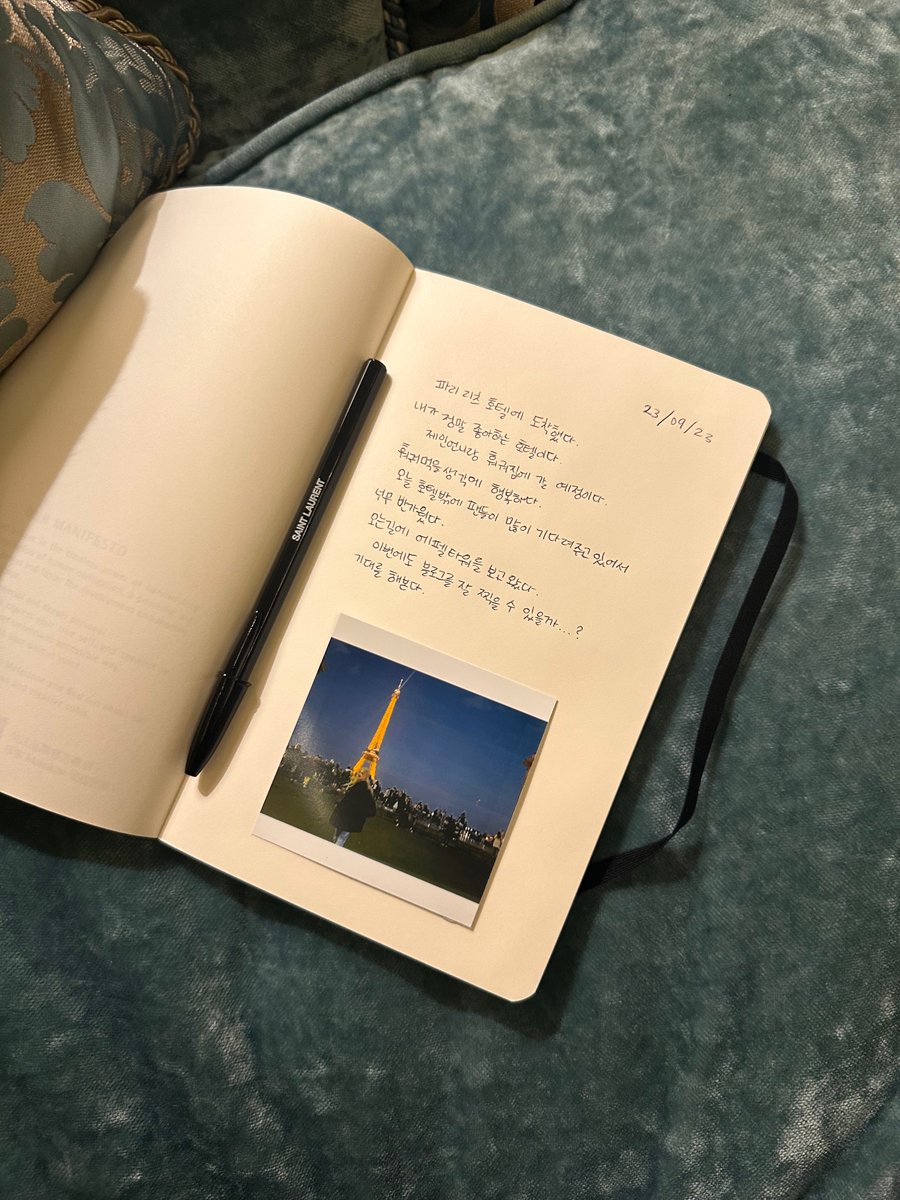 SAINT LAURENT
23/09/23
파리 리츠 호텔에 도착했다.
내가 정말 좋아하는 호텔이다.
제인언니랑 훠궈집에 갈 예정이다.
훠궈먹을생각에 행복하다.
오늘 호텔밖에 팬들이 많이 기다려주고있어서
너무 반가웠다.
오는길에 에펠타워를 보고왔다.
이번에도 블로그를 잘 찍을 수 있을까...?
기대를 해본다.